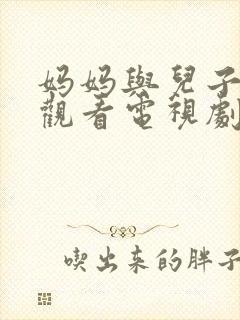 妈妈與兒子
觀看電視劇
喫出来的胖子